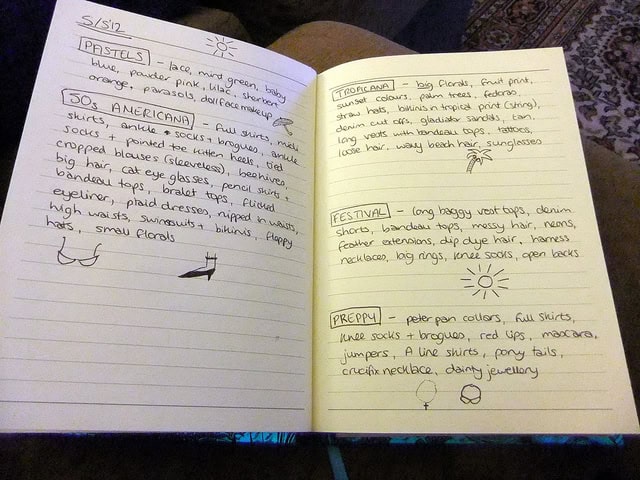 S/S'12
PASTELS - lace, mint green, baby
blue, powder pink, lilac, sherbert
orange, parasols, dollface makeup
50s AMERICANA - full skirts, midi
skirts, ankle socks + brogues, ankle
socks + pointed toe kitten heels, tied
cropped blouses (sleeveless), beehives,
big hair, cat eye glasses, pencil skirts +
bandeau tops, bralet tops, flicked
eyeliner, plaid dresses, nipped in waists,
high waists, swimsuits + bikinis, floppy
hats, small florals
TROPICANA - big florals, fruit print,
sunset colours, palm trees, fedoras,
straw hats, bikinis in tropical print (string),
denim cut offs, gladiator sandals, tan,
long vests with bandeau tops, tattoos,
loose hair, wavy beach hair, sunglasses
FESTIVAL - long baggy vest tops, denim
shorts, bandeau tops, messy hair, neons,
feather extensions, dip dye hair, harness
necklaces, big rings, knee socks, open backs
PREPPY - peter pan collars, full skirts,
knee socks + brogues, red lips, mascara,
jumpers, A line skirts, pony tails,
crucifix necklace, dainty jewellery